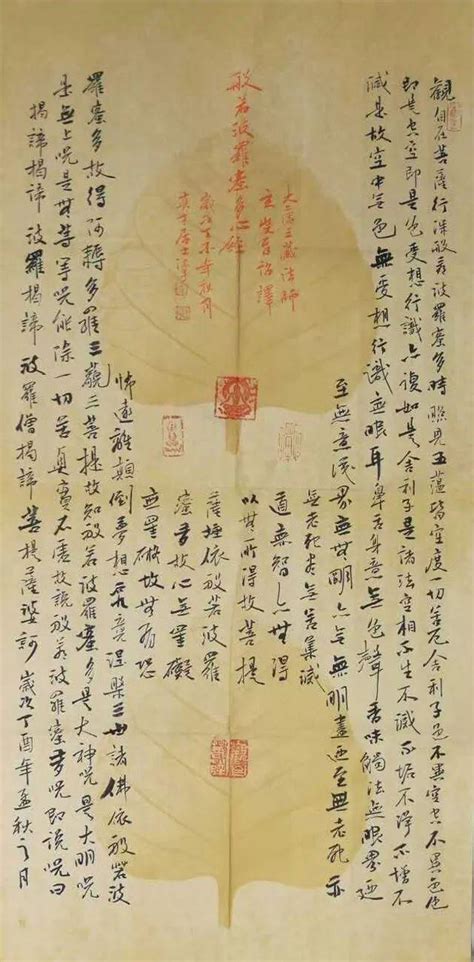 觀自在菩薩行深般若波羅蜜多時照見五蘊皆空度一切苦厄舍利子色不異空空不異色色
即是空空即是色受想行識亦復如是舍利子是諸法空相不生不滅不垢不淨不增不
減是故空中無色無受想行識無眼耳鼻舌身意無色聲香味觸法無眼界迺
至無意識界無無明亦無無明盡迺至無老死亦
無老死盡無苦集滅
道無智亦無得
以無所得故菩提
薩埵依般若波羅
蜜多故心無罣礙
無罣礙故無有恐
怖遠離顛倒夢想究竟涅槃三世諸佛依般若波
羅蜜多故得阿耨多羅三藐三菩提故知般若波羅蜜多是大神呪是大明呪
是無上呪是無等等呪能除一切苦真實不虛故說般若波羅蜜多呪即說呪曰
揭諦揭諦波羅揭諦波羅僧揭諦菩提薩婆訶 歲次丁酉年孟秋之月
大唐三藏法師
玄奘詔譯
般若波羅蜜多心經
歲次丁酉年秋月
居士